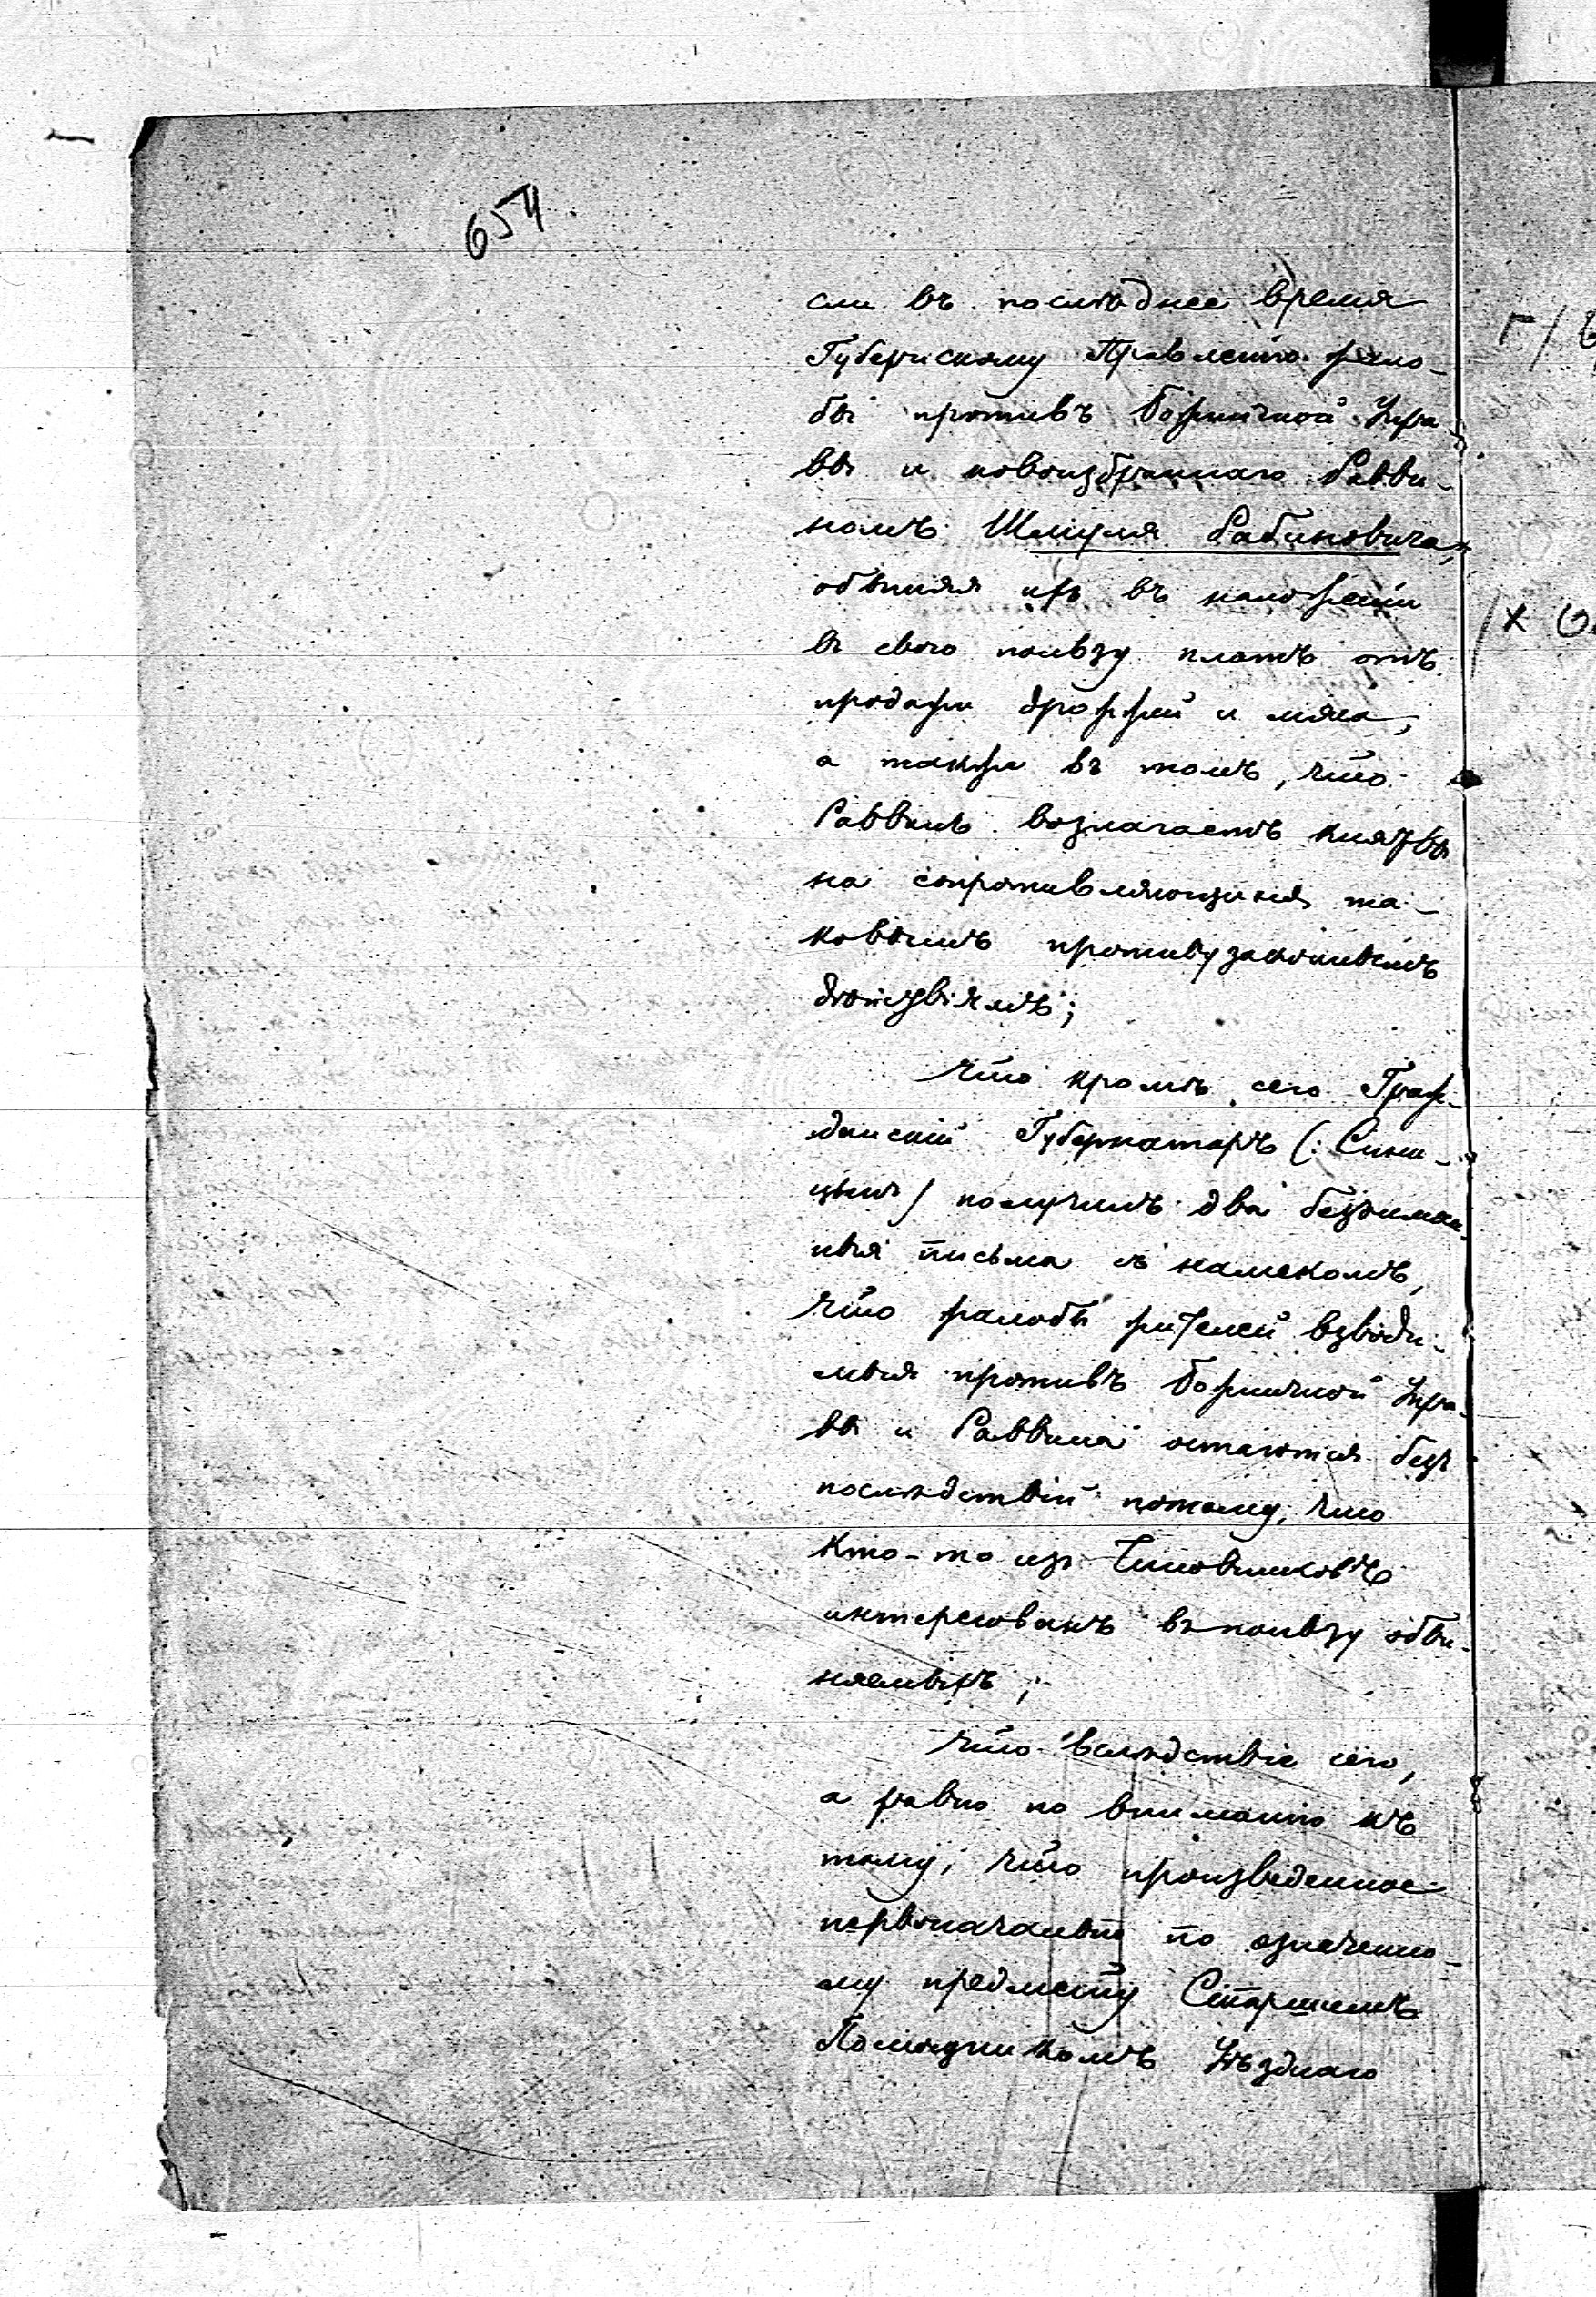 654
сли въ последнее время
Губернскому Правленію жало-
бы противъ Божничной Упра
вы и новоизбраннаго Равви-
номъ Шмуля Рабиновича,
обвиняя ихъ въ наложеніи
въ свою пользу платъ отъ
продажи дрожжей и мяса,
а также въ томъ, что
Раввинъ возлагаетъ клятвы
на сопротивляющихся та-
ковымъ противузаконнымъ
дѣйствіямъ;
что кромѣ сего Граж-
данскій Губернаторъ (: Сини-
цынъ) получилъ два безъимян
ныя письма съ намекомъ,
что жалобы жителей взводи-
мыя противъ Божничной Упра-
вы и Раввина остаются безъ
послѣдствій потому, что
кто-то изъ Чиновниковъ
интересованъ въ пользу обви-
няемыхъ;
что вслѣдствіе сего,
а равно по вниманію къ
тому, что произведенное
первоначально по означенно-
му предмету Старшимъ
Помощникомъ Уѣзднаго